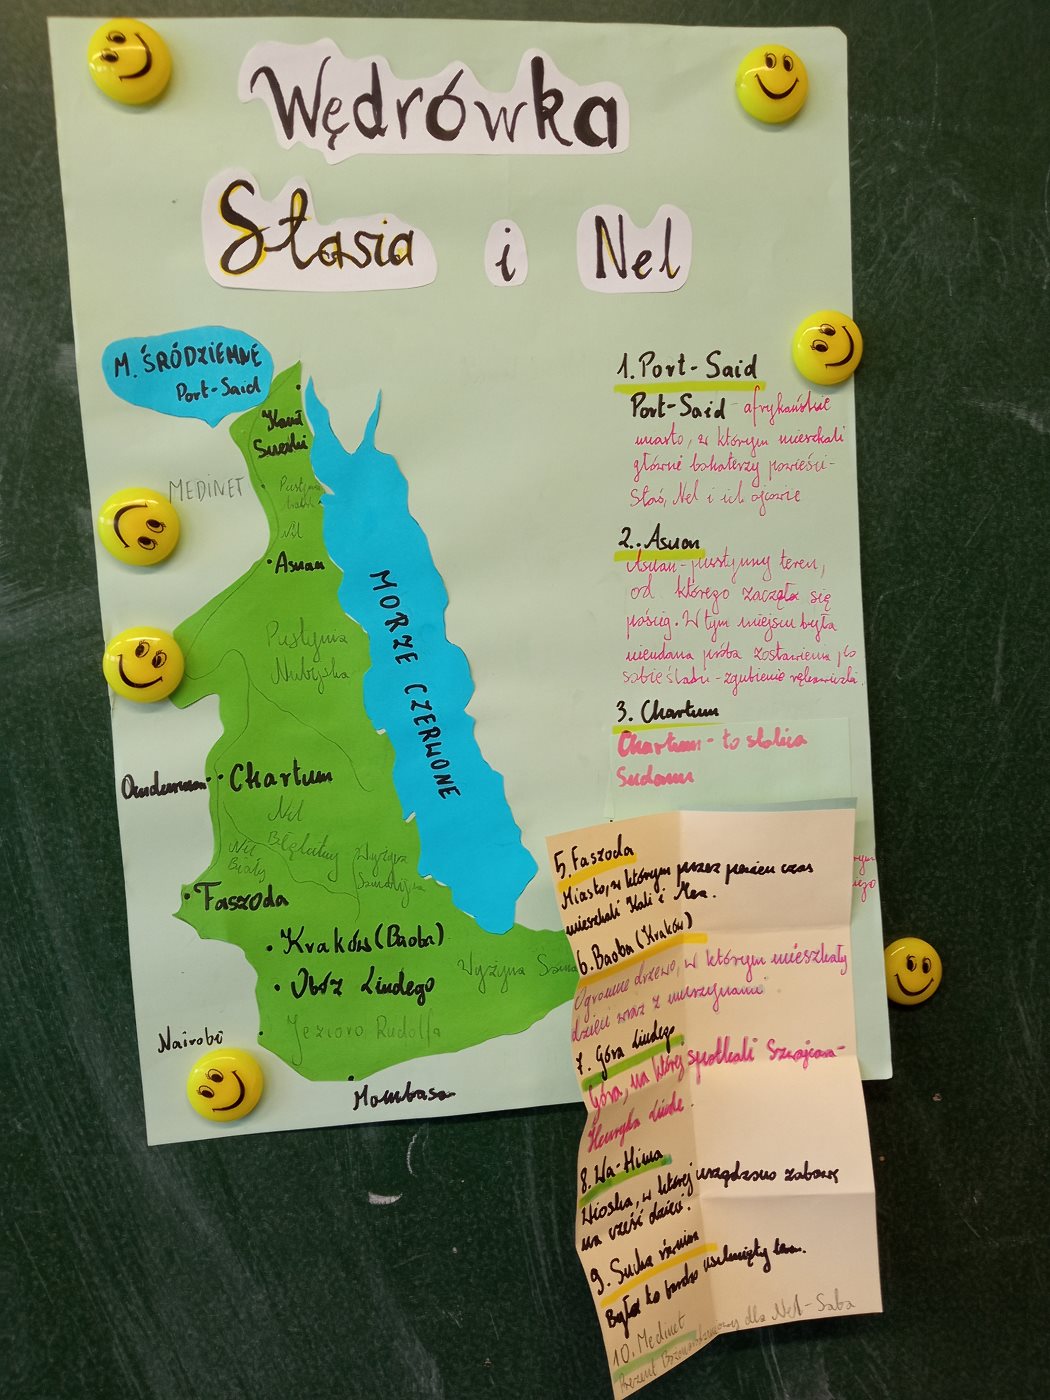 Wędrówka
Stasia i Nel
M. ŚRÓDZIEMNE
Port-Said
Kanał
Sueski
MEDINET
Pustynia
Nil
Asuan
Pustynia
Nubijska
MORZE CZERWONE
Omdurman
Chartum
Nil
Błękitny
Nil
Biały
Wyżyna
Faszoda
Kraków (Baoba)
Obóz Lindego
Wyżyna
Jezioro Rudolfa
Nairobi
Mombasa
1. Port-Said
Port-Said - afrykańskie
miasto, w którym mieszkali
główni bohaterzy powieści-
Staś, Nel i ich ojcowie
2. Asuan
Asuan - pustynny teren,
od którego zaczęła się
pościg. W tym miejscu była
nieudana próba zostawienia po
sobie śladu - zgubienie rękawiczki.
3. Chartum
Chartum - to stolica
Sudanu
5. Faszoda
Miasto, w którym przez pewien czas
mieszkali Kali i Mea.
6. Baoba (Kraków)
Ogromne drzewo, w którym mieszkały
dzieci wraz z murzynami.
7. Góra Lindego
Góra, na której spotkali Szwajcara-
Henryka Linde.
8. Wa-Hima
Wioska, w której urządzono zabawę
na cześć dzieci.
9. Sucha równina
Był to bardzo
10. Medinet
Prezent dla Nel-Saba